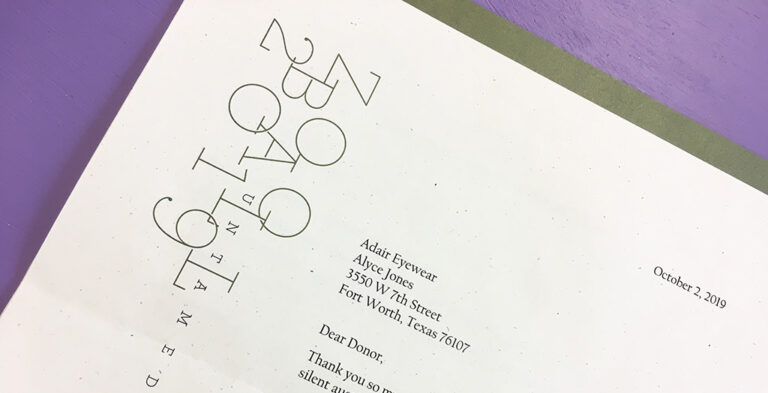 ZOO
BALL
2019
UNTAMED
October 2, 2019
Adair Eyewear
Alyce Jones
3550 W 7th Street
Fort Worth, Texas 76107
Dear Donor,
Thank you so m
silent au